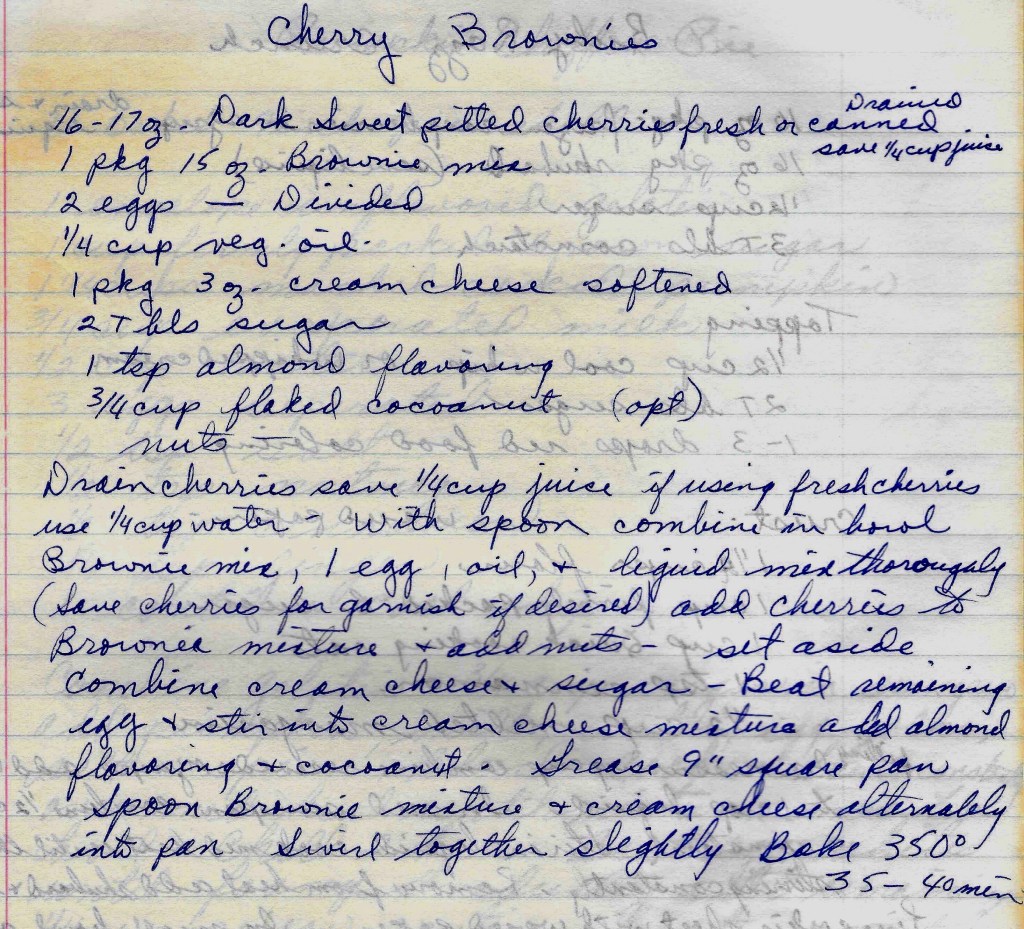 Cherry Brownies
16-17 oz. Dark Sweet pitted cherries fresh or canned Drained
save 1/4 cup juice
1 pkg 15 oz. Brownie mix
2 eggs — Divided
1/4 cup veg. oil.
1 pkg 3 oz. cream cheese softened
2 Tbls sugar
1 tsp almond flavoring
3/4 cup flaked cocoanut (opt)
nuts —
Drain cherries save 1/4 cup juice if using fresh cherries
use 1/4 cup water - With spoon combine in bowl
Brownie mix, 1 egg, oil, + liquid mix thoroughly
(Save cherries for garnish if desired) add cherries to
Brownie mixture + add nuts - set aside
Combine cream cheese + sugar - Beat remaining
egg + stir into cream cheese mixture add almond
flavoring + cocoanut. Grease 9" square pan
Spoon Brownie mixture + cream cheese alternately
into pan Swirl together slightly Bake 350°
35-40 min